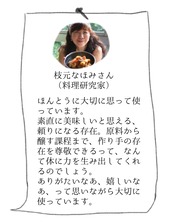 枝元なほみさん
（料理研究家）
ほんとうに大切に思って使
っています。
素直に美味しいと思える、
頼りになる存在。原料から
醸す課程まで、作り手の存
在を尊敬できるって、なん
て体に力を生み出してくれ
るのでしょう。
ありがたいなあ、嬉しいな
あ、って思いながら大切に
使っています。